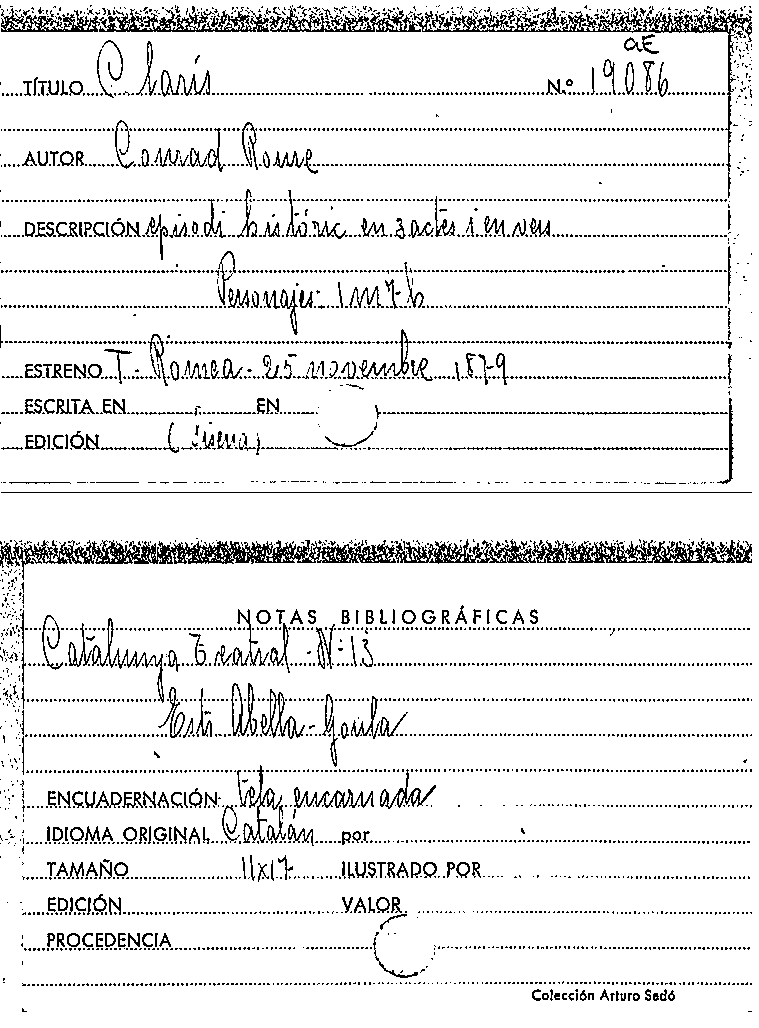 aE
TÍTULO Claris N.º 19086
AUTOR Conrad Roure
DESCRIPCIÓN episodi històric en 3 actes i en vers
Personajes: 1 m 7 h
ESTRENO T. Romea - 25 novembre 1879
ESCRITA EN EN
EDICIÓN
NOTAS BIBLIOGRÁFICAS
Catalunya Teatral - Nº 13
Abella - Goula
ENCUADERNACIÓN tela encarnada
IDIOMA ORIGINAL Catalán por
TAMAÑO 11x17 ILUSTRADO POR
EDICIÓN VALOR
PROCEDENCIA
Colección Arturo Sedó